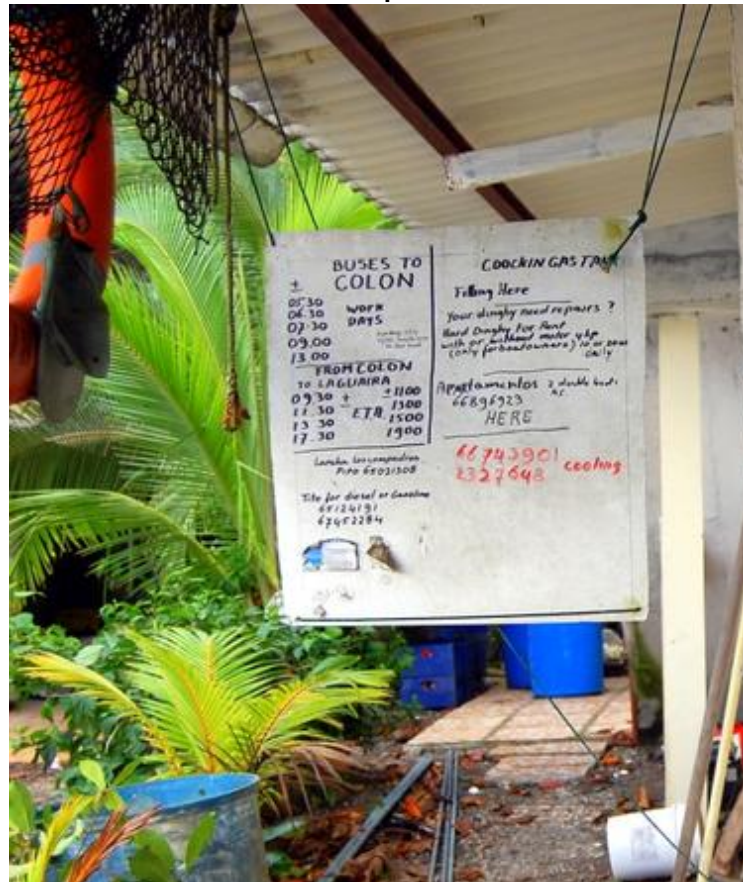 BUSES TO
COLON
±
05:30
06.30
07.30
09.00
13 00
WORK
DAYS
FROM COLON
TO LAGUAIRA
09 30 ± ±1100
11.30 E.T.A. 1300
13 30 1500
17.30 1900
Pito 65031308
Tito for diesel or Gasoline
65124191
67452284
COOCKIN GAS TANK
Filling Here
Your dinghy need repaires ?
Hard Dinghy For Rent
with or without motor 4hp
(only for boatowners) 10 or
only
Apartamentos 2 double beds
AC
66896923
HERE
66743901
2327648 cooling